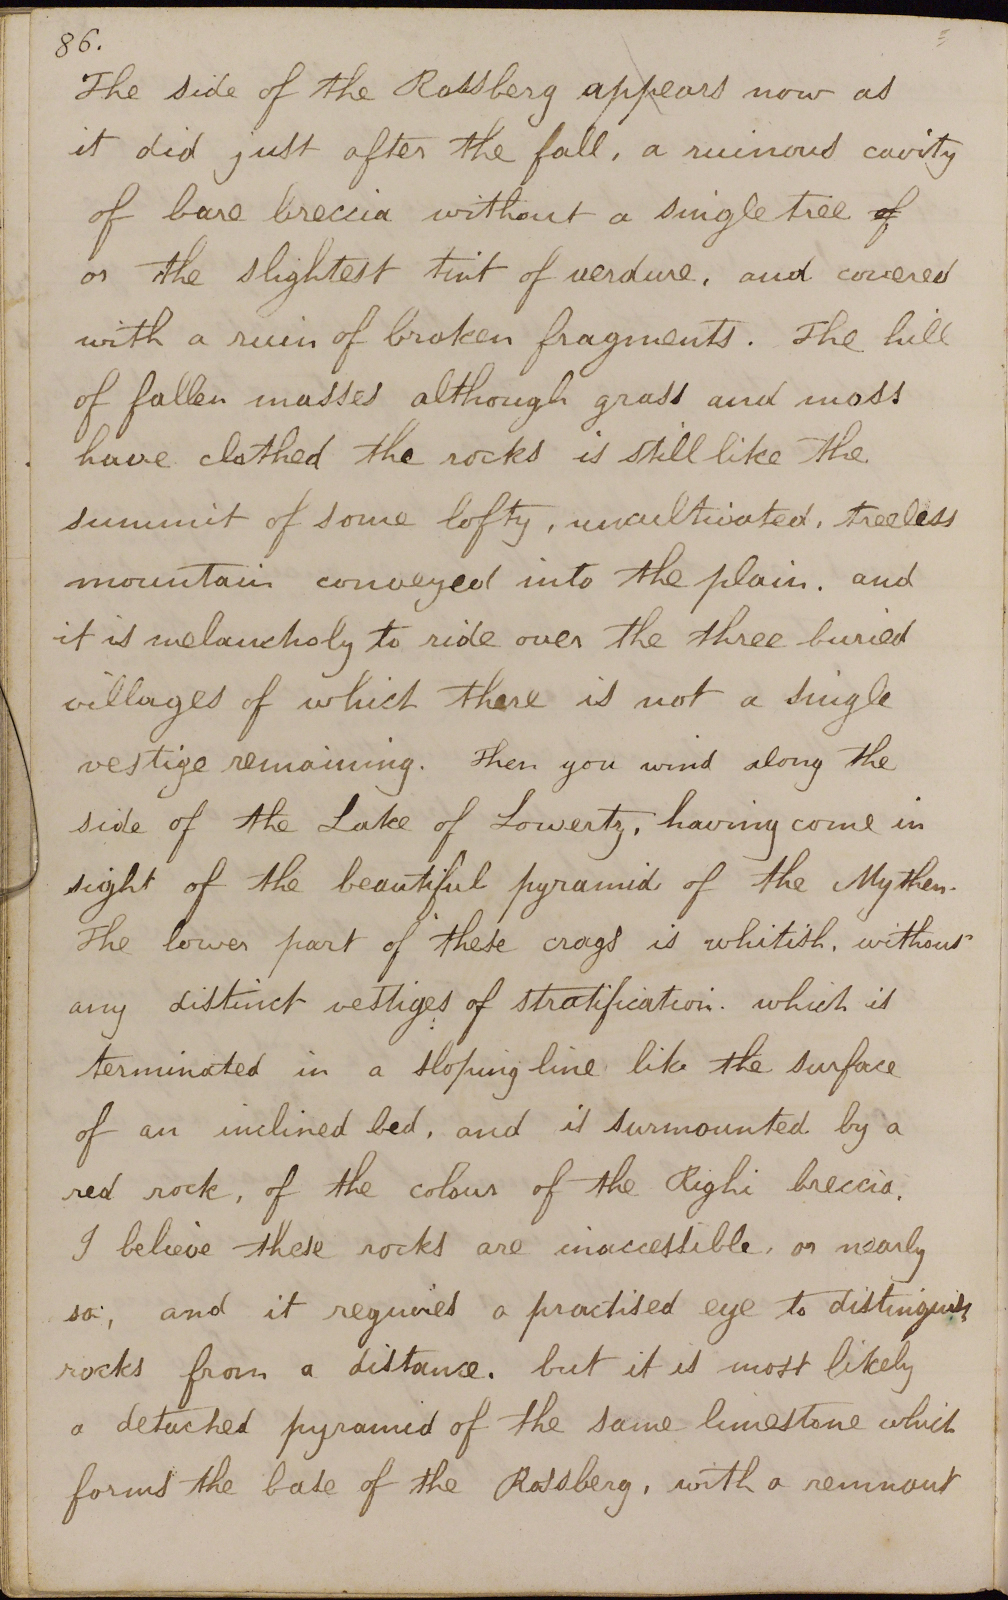 86.
The side of the Rossberg appears now as
it did just after the fall, a ruinous cavity
of bare breccia without a single tree of
or the slightest tint of verdure, and covered
with a ruin of broken fragments. The hill
of fallen masses although grass and moss
have clothed the rocks is still like the
summit of some lofty, uncultivated, treeless
mountain conveyed into the plain, and
it is melancholy to ride over the three buried
villages of which there is not a single
vestige remaining. Then you wind along the
side of the Lake of Lowertz, having come in
sight of the beautiful pyramid of the Mythen.
The lower part of these crags is whitish, without
any distinct vestiges of stratification. which is
terminated in a sloping line like the surface
of an inclined bed, and is surmounted by a
red rock, of the colour of the Righi breccia.
I believe these rocks are inaccessible, or nearly
so, and it requires a practised eye to distinguish
rocks from a distance. but it is most likely
a detached pyramid of the same limestone which
forms the base of the Rossberg, with a remnant